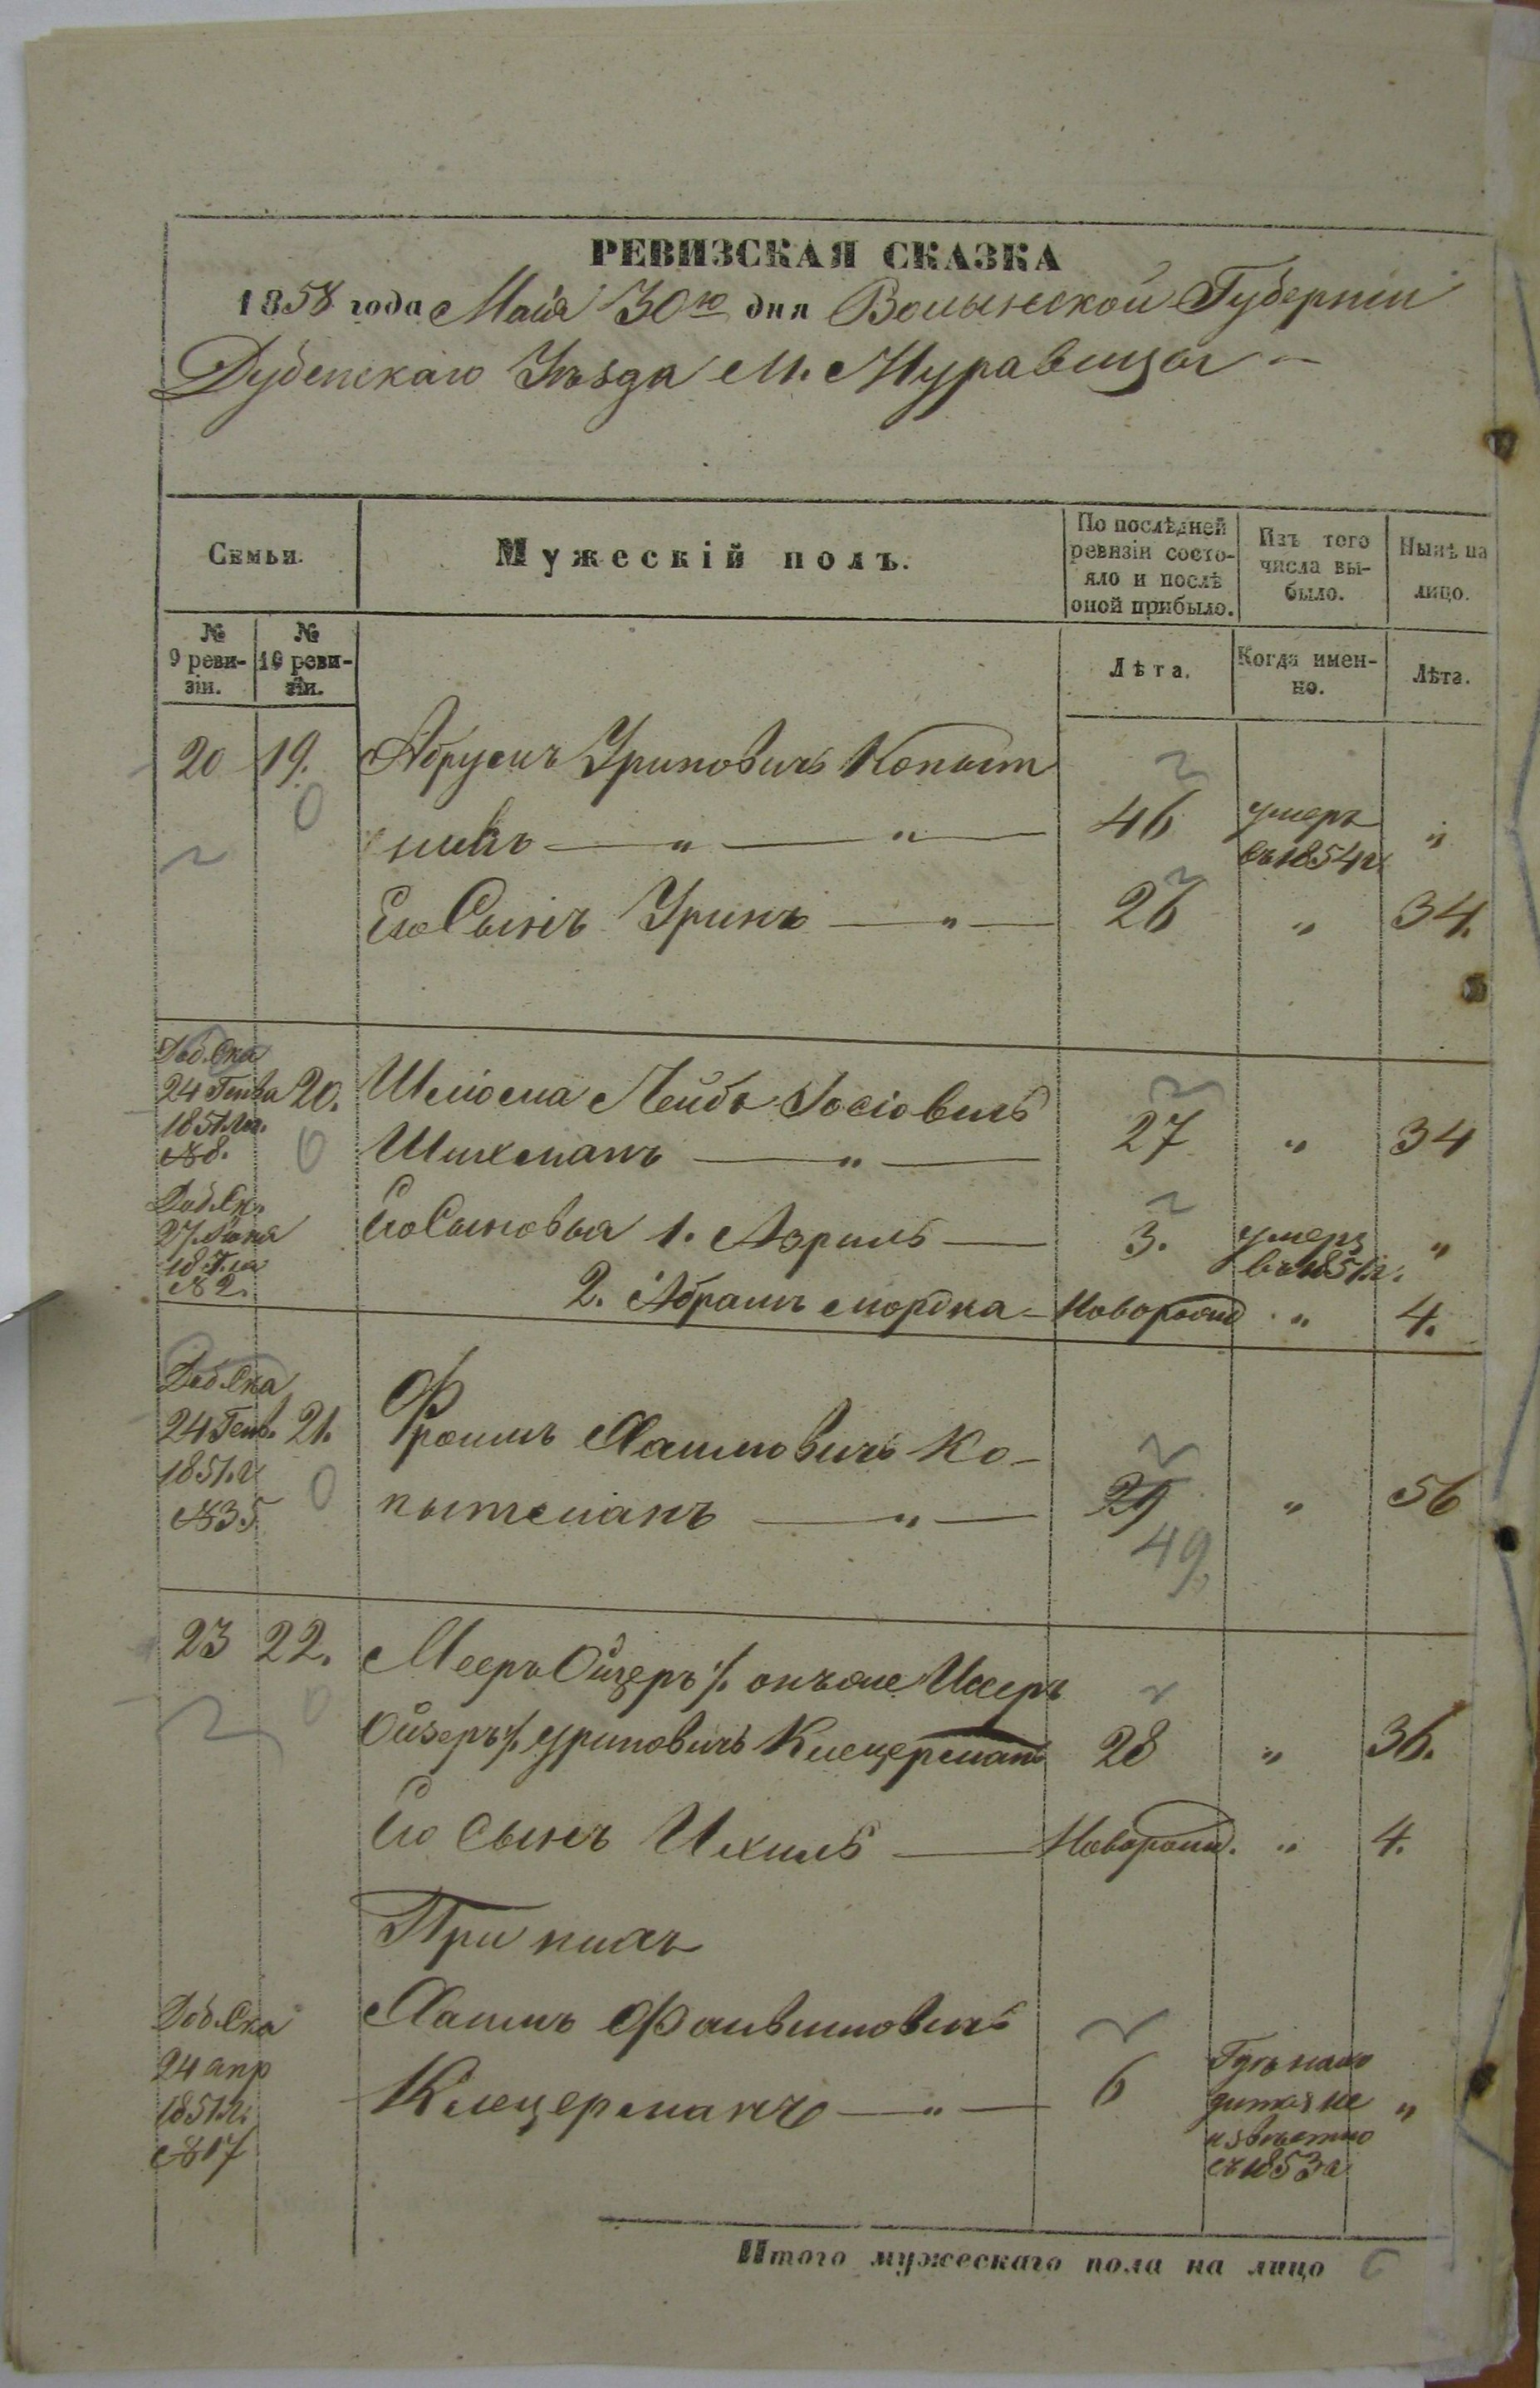 РЕВИЗСКАЯ СКАЗКА
1858 года Мая 30го дня Волынской Губерніи
Дубенскаго Уѣзда М. Муравицы
Семьи.
Мужескій полъ.
По послѣдней ревизіи состо-яло и послѣ оной прибыло.
Изъ того числа вы-было.
Нынѣ на лицо.
№ 9 реви-зіи.
№ 10 реви-зіи.
Лѣта.
Когда имен-но.
Лѣта.
20 19. Абрумъ Уриновичъ Копыт
никъ — " — " — 46 умеръ въ 1854 г. "
Его Сынъ Уринъ — " — 26 " 34.
Доб. Ска
24 Генва 20. Шлiома Лейба Iосiовичъ
1851 г.
№ 8. Шихманъ — " — 27 " 34
Доб. Ск.
27 Iюня Его Сыновья 1. Азриль — 3. умеръ въ 1851 г. "
№ 2.
2. Абрамъ мордка — Новорожд " 4.
Доб. Ска
24 Генв. 21. Фроимъ Хаимовичъ Ко-
1851 г
№ 35 пытманъ — " — 29 " 56
49
23 22. Мееръ Ойзеръ /. онъже Исеръ
Ойзеръ /. Уриновичъ Клецерманъ 28 " 36.
Его Сынъ Ихиль — Новорожд. " 4.
При нихъ
Доб. Ска Хаимъ Файвишовичъ
24 апр
1851 г. Клецерманъ — " — 6 Гдѣ нахо дится не извѣстно съ 1853 г "
№ 17
Итого мужескаго пола на лицо 6